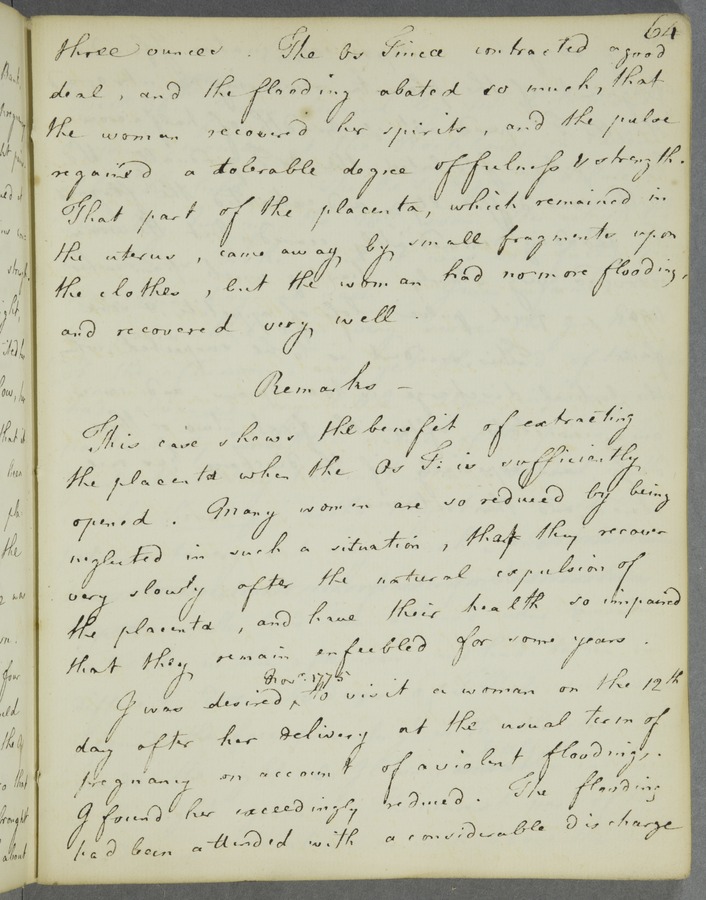 64
three ounces . The Os Tincæ contracted a good
deal , and the flooding abated so much, that
the woman recovered her spirits , and the pulse
regained a tolerable degree of fulness & strength .
That part of the placenta, which remained in
the uterus , came away by small fragments upon
the clothes , but the woman had no more flooding,
and recovered very well .
Remarks –
This case shows the benefit of extracting
the placenta when the Os T: is sufficiently
opened . Many women are so reduced by being
neglected in such a situation , that they recover
very slowly after the natural expulsion of
the placenta , and have their health so impaired
that they remain enfeebled for some years .
Novr. 1775
I was desired ^ to visit a woman on the 12th
day after her delivery at the usual term of
pregnancy on account of a violent floodings .
I found her exceedingly reduced . The flooding
had been attended with a considerable discharge